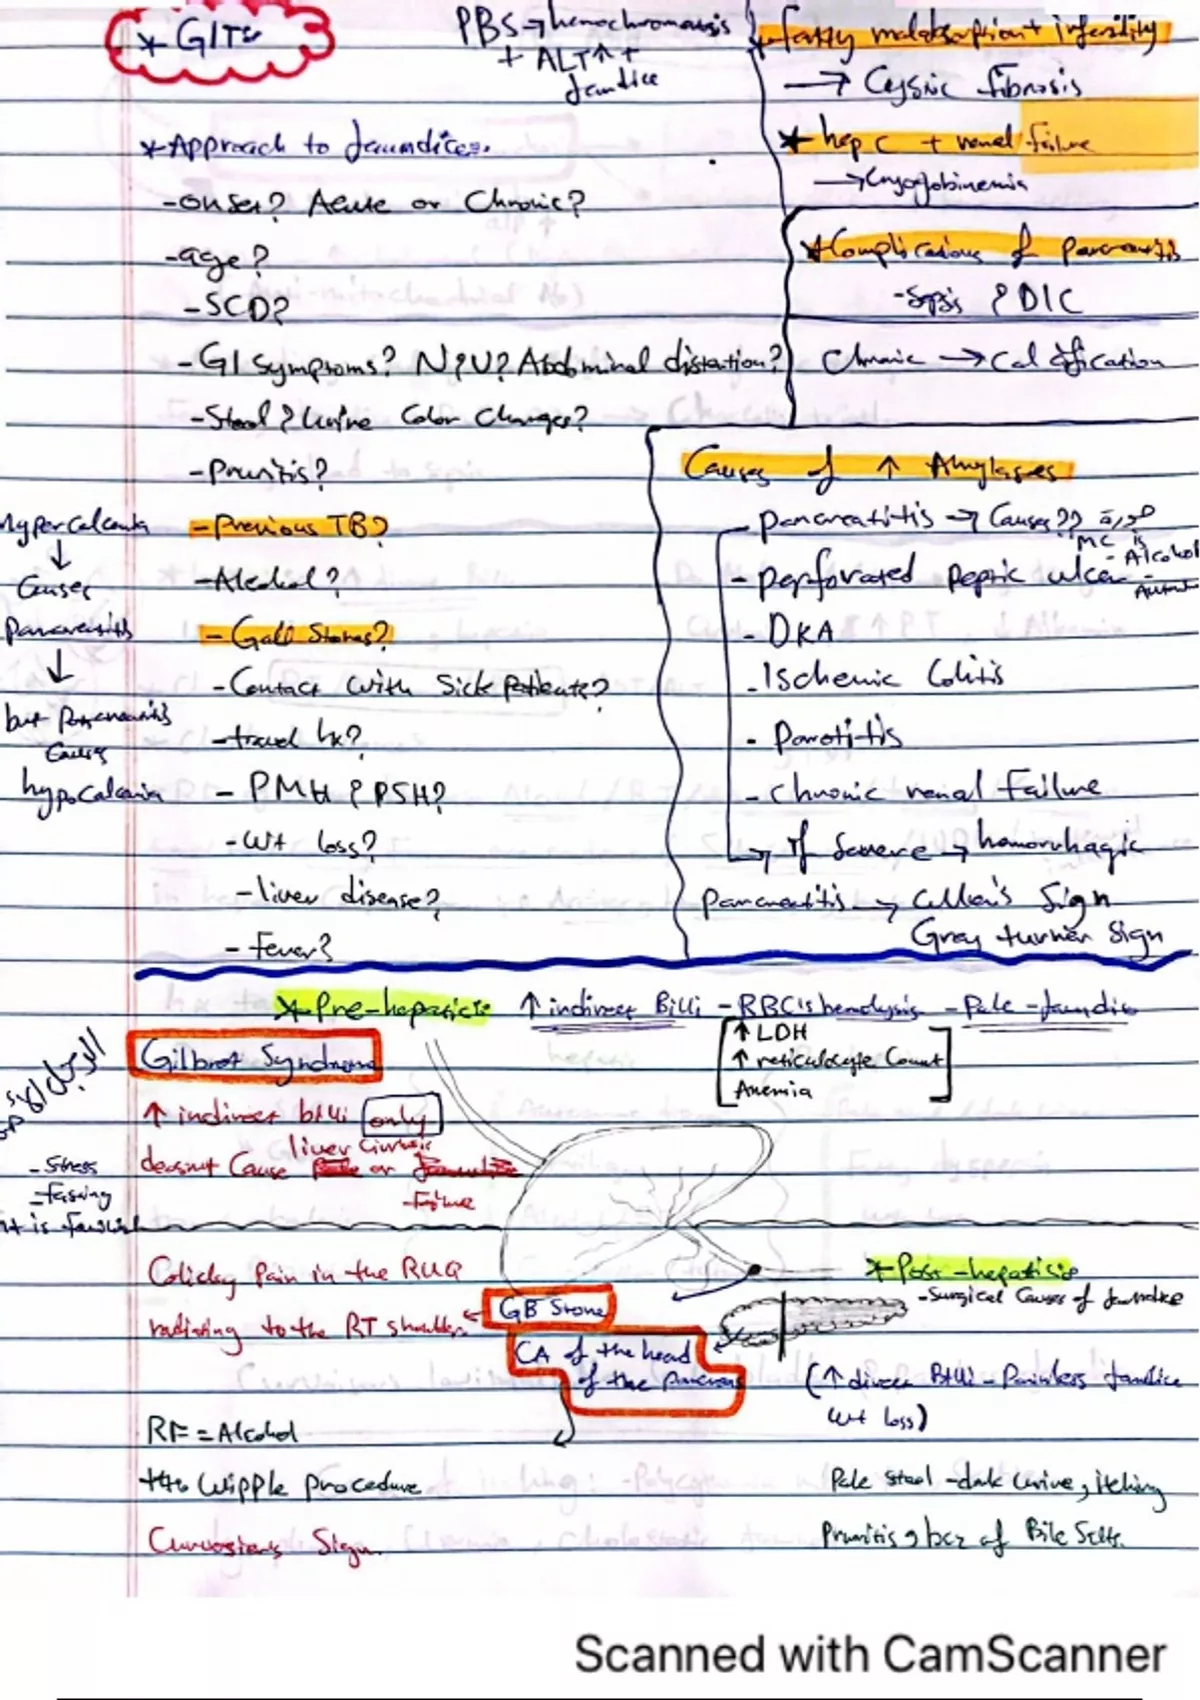 * GIT
PBS → hemochromatosis
+ ALT↑ +
Jaundice
* fatty malabsorption + infertility
→ Cystic fibrosis
* hep C + renal failure
→ Cryoglobinemia
* Complications of pancreatitis
- Sepsis & DIC
Chronic → Calcification
* Approach to Jaundice.
- onset? Acute or Chronic?
- age?
- SCD?
- GI symptoms? N&V? Abdominal distention?
- Stool & Urine Color Changes?
- Pruritis?
- Previous TB?
- Alcohol?
- Gall Stones?
- Contact with Sick patients?
- travel hx?
- PMH & PSH?
- wt loss?
- liver disease?
- Fever?
Hypercalcemia
↓
Causes
Pancreatitis
↓
but Pancreatitis
Causes
hypocalcemia
Causes of ↑ Amylases
- pancreatitis → Causes?? صورة
MC is
- Alcohol
- perforated peptic ulcer
- DKA
- Ischemic Colitis
- Parotitis
- Chronic renal Failure
→ If Severe → hemorrhagic
pancreatitis → Cullen's Sign
Grey turner Sign
* Pre-hepatic ↑ indirect Bili - RBC's hemolysis - Pale - Jaundice
↑ LDH
↑ reticulocyte Count
Anemia
Gilbret Syndrome
↑ indirect bili only
liver Cirrhosis
doesnt Cause or
- Failure
- Stress
- fasting
it is familial
Colicky Pain in the RUQ
radiating to the RT shoulder
GB Stone
CA of the head
of the pancreas
* Post-hepatic
- Surgical Causes of Jaundice
(↑ direct Bili - Painless Jaundice
wt loss)
RF = Alcohol
tto Wipple procedure
Pale Stool - dark urine, itching
Pruritis, bcz of Bile Salts.